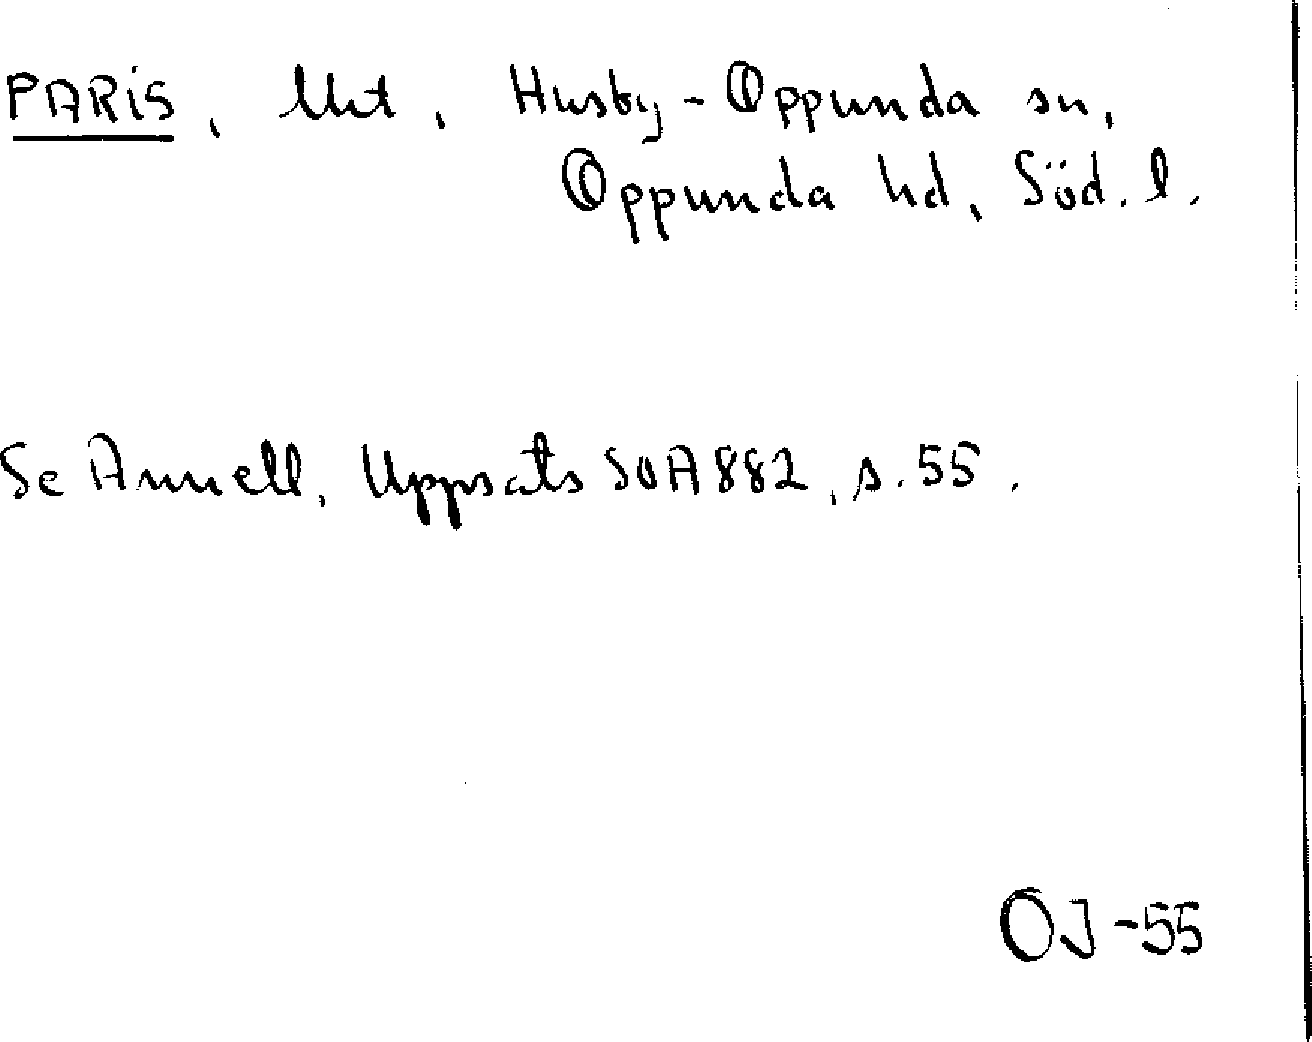 PARIS, lht, Husby-Oppunda sn,
Oppunda hd, Söd. l.
Se Annell, Uppsats SOA 882, s. 55.
OJ-55